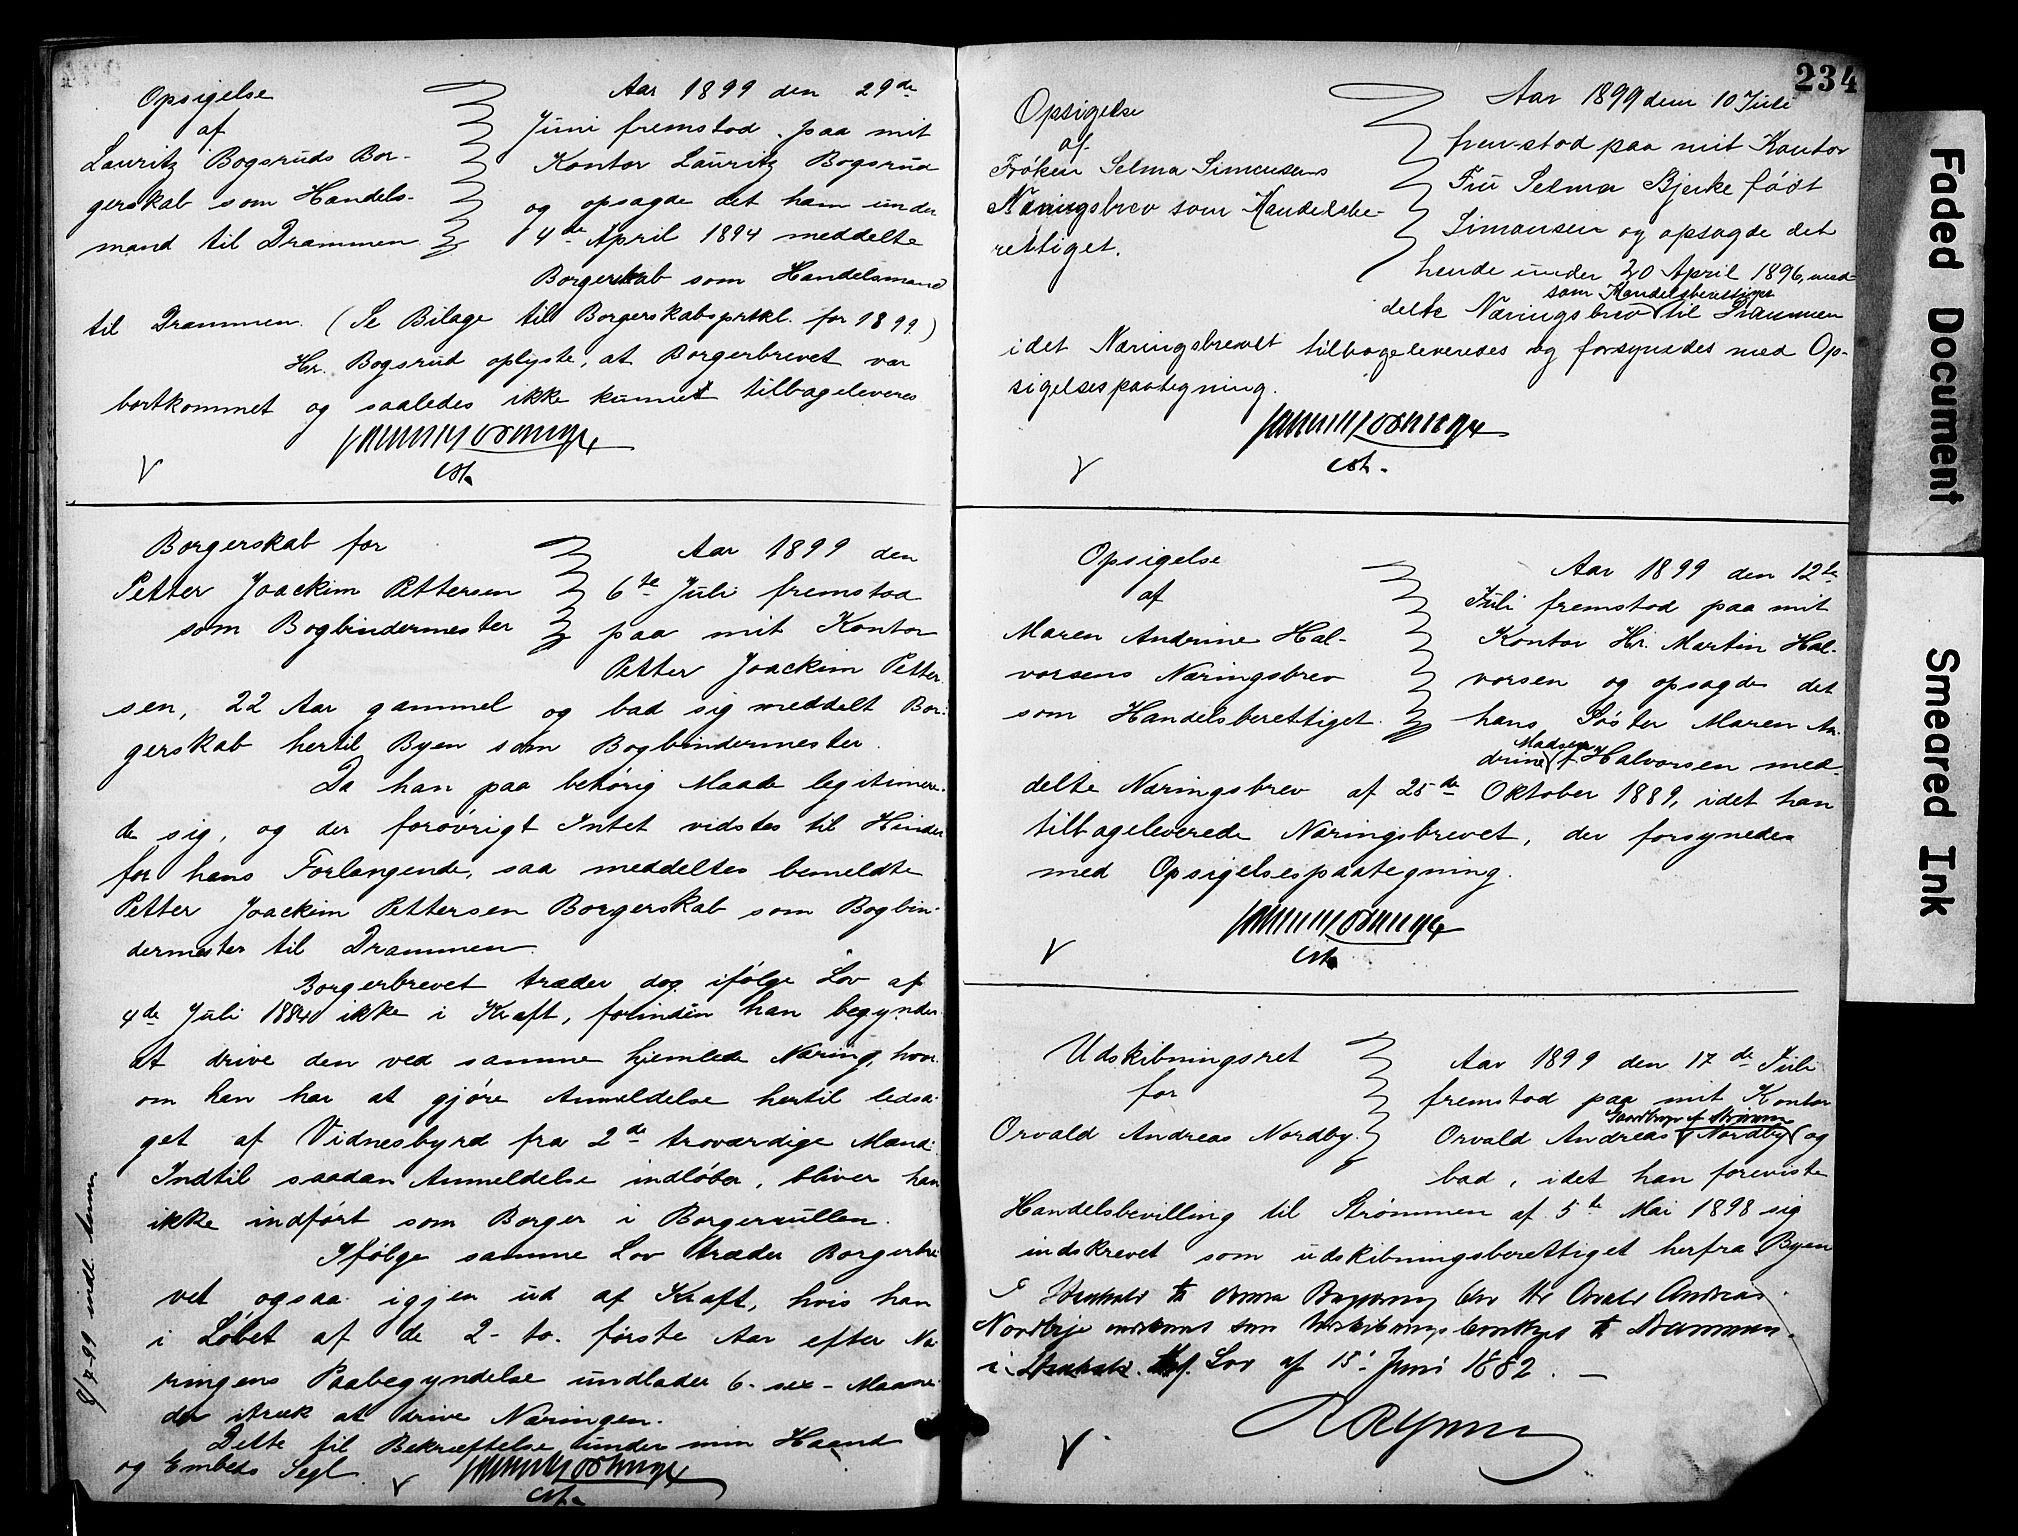 Opsigelse
af
Lauritz Bogsruds Bor-
gerskab som Handels-
mand til Drammen
Aar 1899 den 29de
Juni fremstod paa mit
Kontor Lauritz Bogsrud
og opsagde det ham under
4de April 1894 meddelte
Borgerskab som Handelsmand
til Drammen. (Se Bilage til Borgerskabsprtkl. for 1899)
Hr. Bogsrud oplyste, at Borgerbrevet var
bortkommet og saaledes ikke kunnet tilbageleveres
cst.
Borgerskab for
Petter Joackim Pettersen
som Bogbindermester
Aar 1899 den
6te Juli fremstod
paa mit Kontor
Petter Joackim Petter-
sen, 22 Aar gammel og bad sig meddelt Bor-
gerskab hertil Byen som Bogbindermester.
Da han paa behørig Maade legitimere-
de sig, og der forøvrigt Intet vidstes til Hinder
for hans Forlangende, saa meddeltes bemeldte
Petter Joackim Pettersen Borgerskab som Bogbin-
dermester til Drammen.
Borgerbrevet træder dog ifølge Lov af
4de Juli 1884 ikke i Kraft, forinden han begynder
at drive den ved samme hjemlede Næring, hvor-
om han har at gjøre Anmeldelse hertil ledsa-
get af Vidnesbyrd fra 2de troværdige Mænd.
Indtil saadan Anmeldelse indløber, bliver han
ikke indført som Borger i Borgerrullen.
Ifølge samme Lov træder Borgerbre-
vet ogsaa igjen ud af Kraft, hvis han
i Løbet af de 2- to- første Aar efter Næ-
ringens Paabegyndelse undlader 6- sex- Maane-
der itræk at drive Næringen.
Dette til Bekræftelse under min Haand
og Embeds Segl.
cst.
8/7-99 indt.
234
Opsigelse
af
Frøken Selma Simensens
Næringsbrev som Handelsbe-
rettiget.
Aar 1899 den 10 Juli
fremstod paa mit Kontor
Fru Selma Bjerke født
Simonsen og opsagde det
hende under 20 April 1896, med-
som Handelsberettiget
delte Næringsbrev til Drammen
idet Næringsbrevet tilbageleveredes og forsynedes med Op-
sigelsespaategning.
cst.
Opsigelse
af
Maren Andrine Hal-
vorsens Næringsbrev
som Handelsberettiget.
Aar 1899 den 12te
Juli fremstod paa mit
Kontor Hr. Martin Hal-
vorsen og opsagde det
hans Søster Maren An-
Madsen
drine f. Halvorsen med-
delte Næringsbrev af 25de Oktober 1889, idet han
tilbageleverede Næringsbrevet, der forsynedes
med Opsigelsespaategning.
cst.
Udskibningsret
for
Orvald Andreas Nordby.
Aar 1899 den 17de Juli
fremstod paa mit Kontor
af Strømmen
Orvald Andreas Nordby og
bad, idet han foreviste
Handelsbevilling til Strømmen af 5te Mai 1898 sig
indskrevet som udskibningsberettiget herfra Byen
I Henhold til denne Begjæring blev Hr Orvald Andreas
Nordbye indskrevet som Udskibningsberettiget til Drammen
i Henhold til Lov af 15. Juni 1882.
Faded Document
Smeared Ink